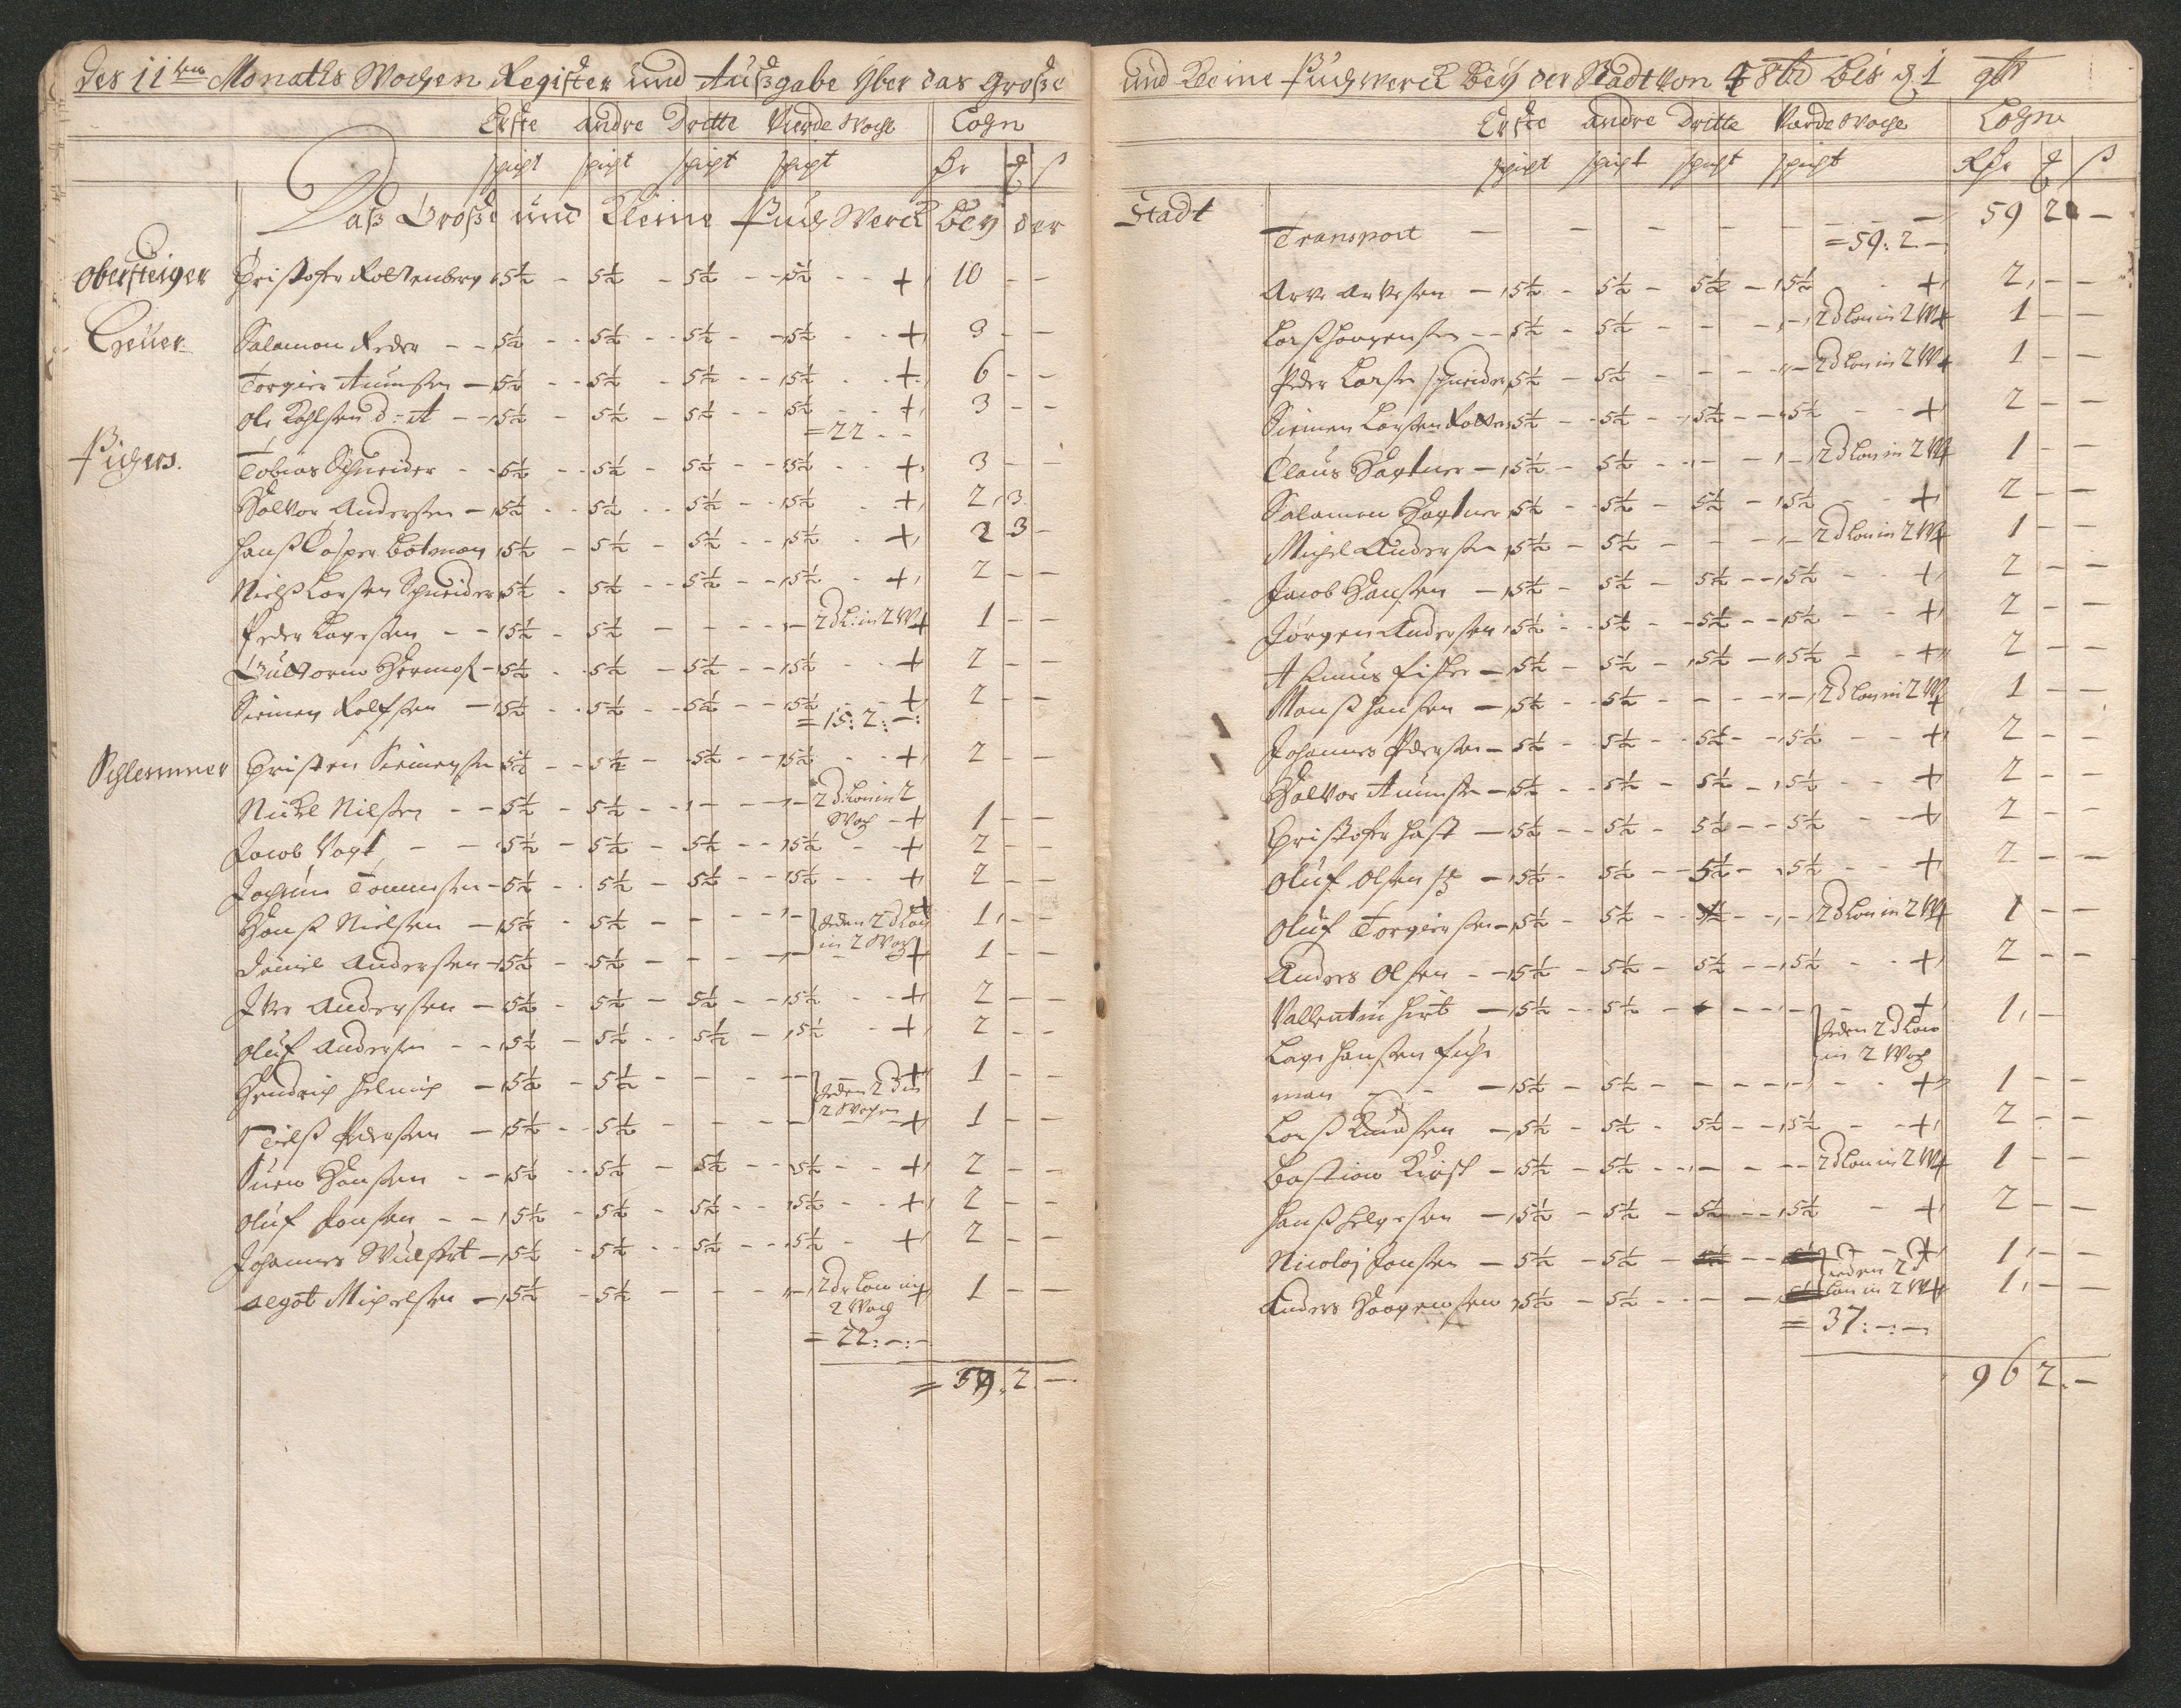 Des 11ten Monaths Wochen Register und Außgabe Yber das große
Erste andre Dritte Vierde Woche Lohn
schicht schicht schicht schicht
Daß Große und Kleine Puch Werck bey der
Obersteiger Christofer Roltenberg 5½ - 5½ - 5½ - 5½ - + 10 - -
Salamon Reder - - 5½ - - 5½ - - 5½ - - 5½ - - + 3 - -
Torgier Amunsen - 5½ - - 5½ - 5½ - - 5½ - - + 6 - -
Ole - - 5½ - 5½ - 5½ - - 5½ - - + 3 - -
= 22 - -
Puchers. Tobias Schneider - - 5½ - - 5½ - 5½ - - 5½ - - + 3 - -
Halvor Andersen - 5½ - - 5½ - - 5½ - - 5½ - - + 2 3
Hanß Casper Botman 5½ - 5½ - 5½ - - 5½ - + 2 3 -
Nielß Larsen Schneider 5½ - 5½ - - 5½ - - 5½ - + 2 - -
Peder Lagesen - - 5½ - 5½ - - - - 2 d L: in 2 W + 1 - -
Guttorm - 5½ - - 5½ - 5½ - - 5½ - - + 2 - -
Siemen Rolfsen - 5½ - - 5½ - - 5½ - - 5½ - - + 2 - -
= 15: 2: -:
Schlemmer Christen Siemensen 5½ - - 5½ - 5½ - - 5½ - - + 2 - -
Nickel Nilsen - - 5½ - 5½ - - - - - 2 d Lon in 2
Woch - + 1 - -
Jacob Vogt - - 5½ - 5½ - 5½ - - 5½ - - + 2 - -
Jochum Tommesen - 5½ - - 5½ - 5½ - - 5½ - - + 2 - -
Hanß Nielsen - 5½ - 5½ - - - - Jeden 2 d Lon + 1 - -
in 2 Woch
Daniel Andersen - 5½ - - 5½ - - - - + 1 - -
Iver Andersen - 5½ - 5½ - 5½ - - 5½ - - + 2 - -
Oluf Andersen - - 5½ - 5½ - - 5½ - 5½ - + 2 - -
Hendrich Helmich - 5½ - 5½ - - - - Jeden 2 d in + 1 - -
2 Wochen
Nielß Pedersen - 5½ - - 5½ - - - - + 1 - -
Suen Hansen - - 5½ - - 5½ - 5½ - - 5½ - - + 2 - -
Oluf Jonsen - - 5½ - 5½ - 5½ - - 5½ - - + 2 - -
Johannes Wulfert - 5½ - 5½ - - 5½ - - 5½ - + 2 - -
Michelsen - 5½ - 5½ - - - - 2 dr Lon in + 1 - -
2 Woch
= 22: -: -
= 59. 2. -
und Kleine Puchwerck bey der Stadt von 4 8br bis d. 1 9br
Erste andre Dritte Vierde Woche Lohn
schicht schicht schicht schicht
Stadt Transport - - - - - - - 59 2 -
= 59: 2. -
Arve Arvesen - 5½ - 5½ - 5½ - 5½ - + 2 - -
Larß Haagensen - - 5½ - 5½ - - - - 2 d Lon in 2 W + 1 - -
Peder Larsen Schneider 5½ - 5½ - - - - 2 d Lon in 2 W + 1 - -
Siemen Larsen 5½ - - 5½ - 5½ - - 5½ - - + 2 - -
Claus - 5½ - 5½ - - - - 2 d Lon in 2 W + 1 -
Salamon 5½ - - 5½ - 5½ - 5½ - - + 2 - -
Michel Andersen 5½ - 5½ - - - - 2 d Lon in 2 W + 1 - -
Jacob Hansen - 5½ - 5½ - 5½ - - 5½ - - + 2 - -
Jörgen Andersen 5½ - - 5½ - - 5½ - - 5½ - - + 2 - -
Asmus Fisker - 5½ - 5½ - 5½ - 5½ - - + 2 - -
Monß Hansen - 5½ - - 5½ - - - - 2 d Lon in 2 W + 1 - -
Johannes Pedersen - 5½ - - 5½ - - 5½ - - 5½ - - + 2 - -
Halvor Amunsen - 5½ - - 5½ - - 5½ - 5½ - - + 2 - -
Christofer Hast - 5½ - - 5½ - 5½ - - 5½ - - + 2 -
Oluf Olsen - 5½ - 5½ - - 5½ - 5½ - - + 2 - -
Oluf Torgiersen - 5½ - 5½ - - - - 2 d Lon in 2 W + 1 - -
Anders Olsen - - 5½ - 5½ - 5½ - - 5½ - - + 2 - -
Vallentin Hirt - 5½ - - 5½ - - - - + 1 -
Jeden 2 d Lon
Lage Hansen
in 2 Woch
man - - - 5½ - 5½ - - - - - - + 1 - -
Larß Knudsen - 5½ - 5½ - 5½ - - 5½ - - + 2 - -
Bastian - 5½ - 5½ - - - - - 2 d Lon in 2 W + 1 - -
Hanß Helgesen - 5½ - 5½ - 5½ - - 5½ - + 2 - -
Nicolaj Jonsen - 5½ - 5½ - - - Jeden 2 d + 1 - -
Anders Haagensen 5½ - 5½ - - - - Lon in 2 W + 1 - -
= 37: -: -
96 2. -